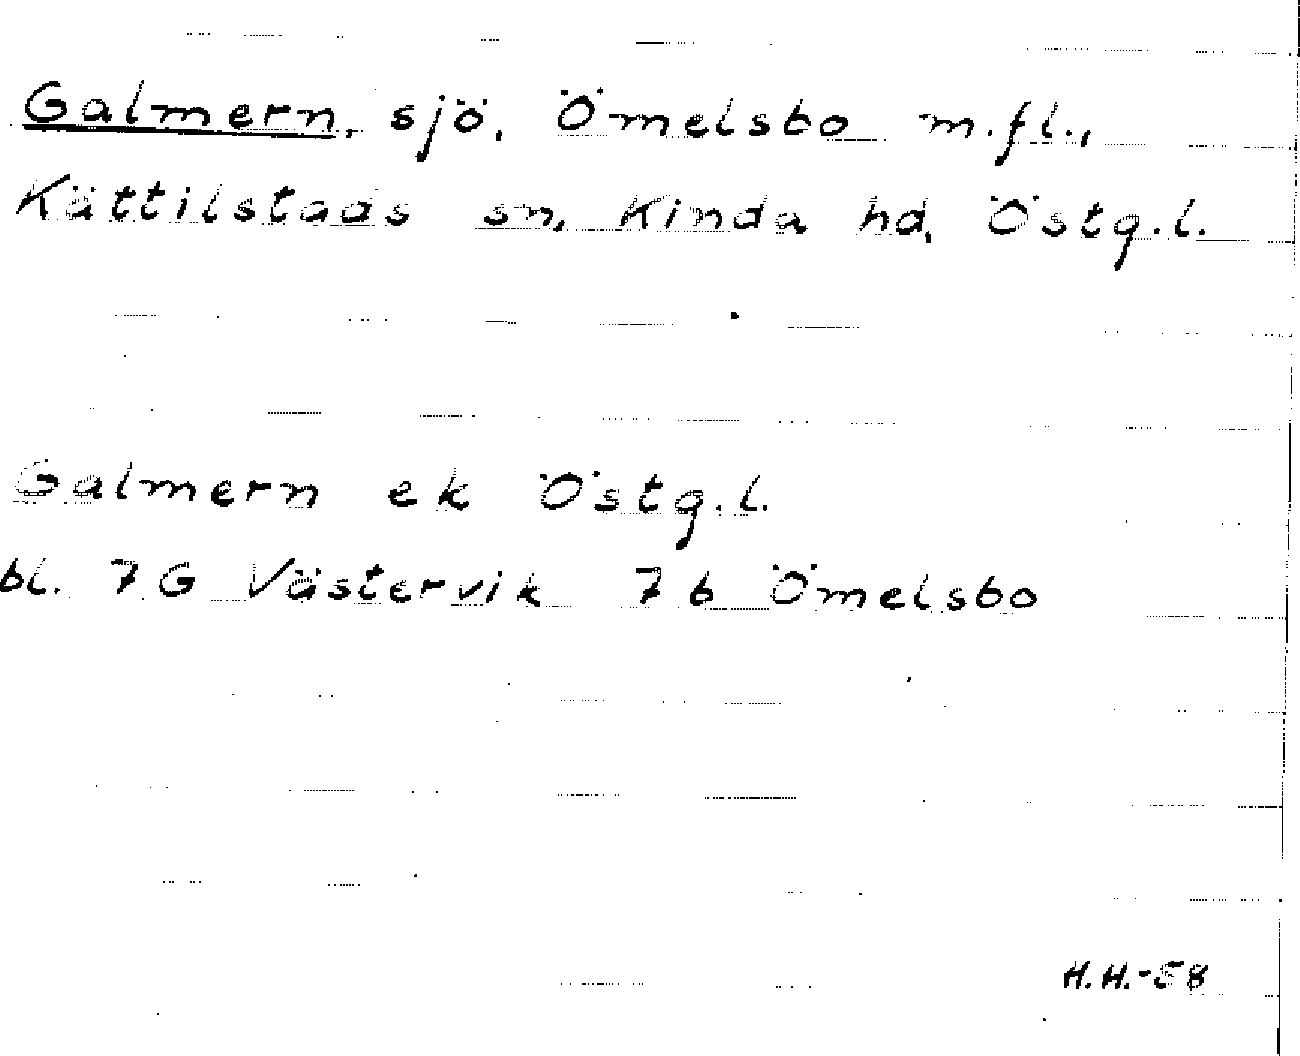 Galmern, sjö, Ömelsbo m.fl.,
Kättilstads sn, Kinda hd, Östg.l.
Galmern ek Östg.l.
bl. 7 G Västervik 7 b Ömelsbo
H.H.-58